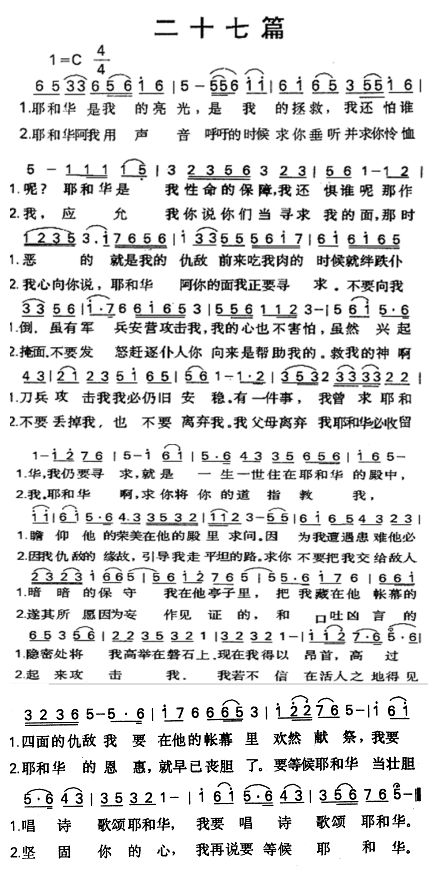 二十七篇
1=C 4/4
6 5 3 3 6 5 6 1 6 | 5 - 5 5 6 1 1 | 6 1 6 5 3 5 5 1 6 |
1.耶和华 是我 的亮光,是 我 的拯救,我还怕谁
2.耶和华阿我用 声 音 呼吁的时候 求你垂听并求你怜恤
5 - 1 1 1 1 5 | 3 2 3 5 6 3 2 3 | 5 6 1-1 2 |
1.呢? 耶和华是 我性命的保障,我还 惧谁呢 那作
2.我, 应 允 我你说你们当寻求 我的面,那时
1 2 3 5 3.1 7 6 5 6 | 1 3 3 5 5 5 6 1 7 | 6 1 6 1 6 5
1.恶 的 就是我的 仇敌 前来吃我肉的 时候就绊跌仆
2.我心向你说,耶和华 阿你的面我正要寻 求 .不要向我
3 3 5 6 | 1.7 6 6 1 6 5 3 | 5 5 6 1 1 2 3-| 5 6 1 5.6
1.倒. 虽有军 兵安营攻击我,我的心也不害怕,虽然 兴起
2.掩面.不要发 怒赶逐仆人你 向来是帮助我的.救我的神 啊
4 3 | 2 1 2 3 5 1 6 5 | 6 1-1.2 | 3 5 3 2 3 3 3 3 2 2 |
1.刀兵 攻 击我我必仍旧 安 稳.有一件事,我曾 求耶和
2.不要丢掉我, 也 不 要 离弃我.我父母离弃 我耶和华必收留
1-1 2 7 6 | 5-1 6 1 | 5.6 4 3 3 5 6 5 6 | 1 6 5-
1.华,我仍要寻 求,就是 一 生一世住在耶和华 的殿中,
2.我.耶和华 啊,求你将 你 的 道 指 教 我,
1 1 | 6 1 5.6 4.3 3 5 3 2 | 1 1 2 3-5 5 | 6 1 6 5 4 3 2 3 |
1.瞻 仰 他 的荣美在他的殿里 求问.因 为我遭遇患难他必
2.因我仇敌的 缘故,引导我走平坦的路.求你 不要把我交给敌人
2 3 2 3 1 6 6 5 | 5 6 1 2 7 6 5 | 5 5.6 1 7 6 | 6 6 1
1.暗 暗的 保守 我在他亭子里, 把 我藏在他 帐幕的
2.遂其所 愿因为妄 作见 证的, 和 口吐凶 言的
6 5 3 5 6 | 2 2 3 5 3 2 1 | 3 2 3 2 1 1-| 1 1 2 7.6 5.6 |
1.隐密处将 我高举在磐石上.现在我得以 昂首,高 过
2.起 来攻 击 我. 我若不 信 在活人之地得见
3 2 3 6 5-5.6 | 1 7 6 6 6 5 3 | 1 2 2 7 6 5-| 1 6 1
1.四面的仇敌 我 要 在他的帐幕 里 欢然 献 祭,我要
2.耶和华 的 恩 惠,就早已丧胆 了.要等候耶和华 当壮胆
5.6 4 3 | 3 5 3 2 1- | 1 6 1 5.6 4 3 | 3 5 6 7 6 5-‖
1.唱 诗 歌颂耶和华, 我要 唱 诗 歌颂 耶和华。
2.坚 固 你 的 心, 我再说要 等候 耶 和 华.